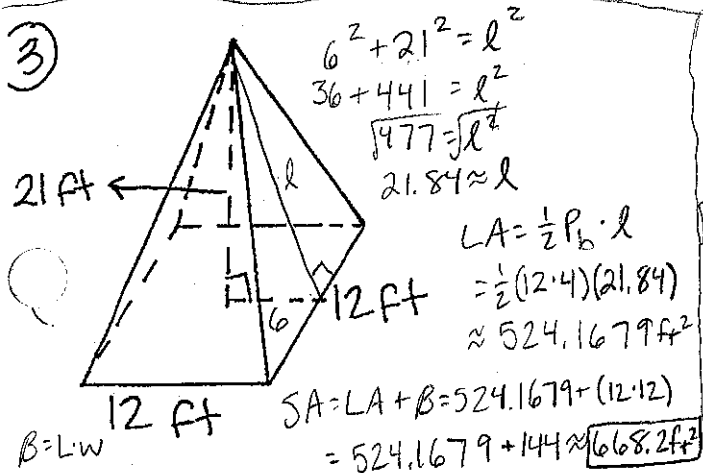 3
6² + 21² = l²
36 + 441 = l²
√477 = √l²
21.84 ≈ l
21 ft
l
LA = ½ P_b · l
= ½(12·4)(21.84)
≈ 524.1679 ft²
6
12 ft
12 ft
SA = LA + B = 524.1679 + (12·12)
= 524.1679 + 144 ≈ 668.2 ft²
B = L·W